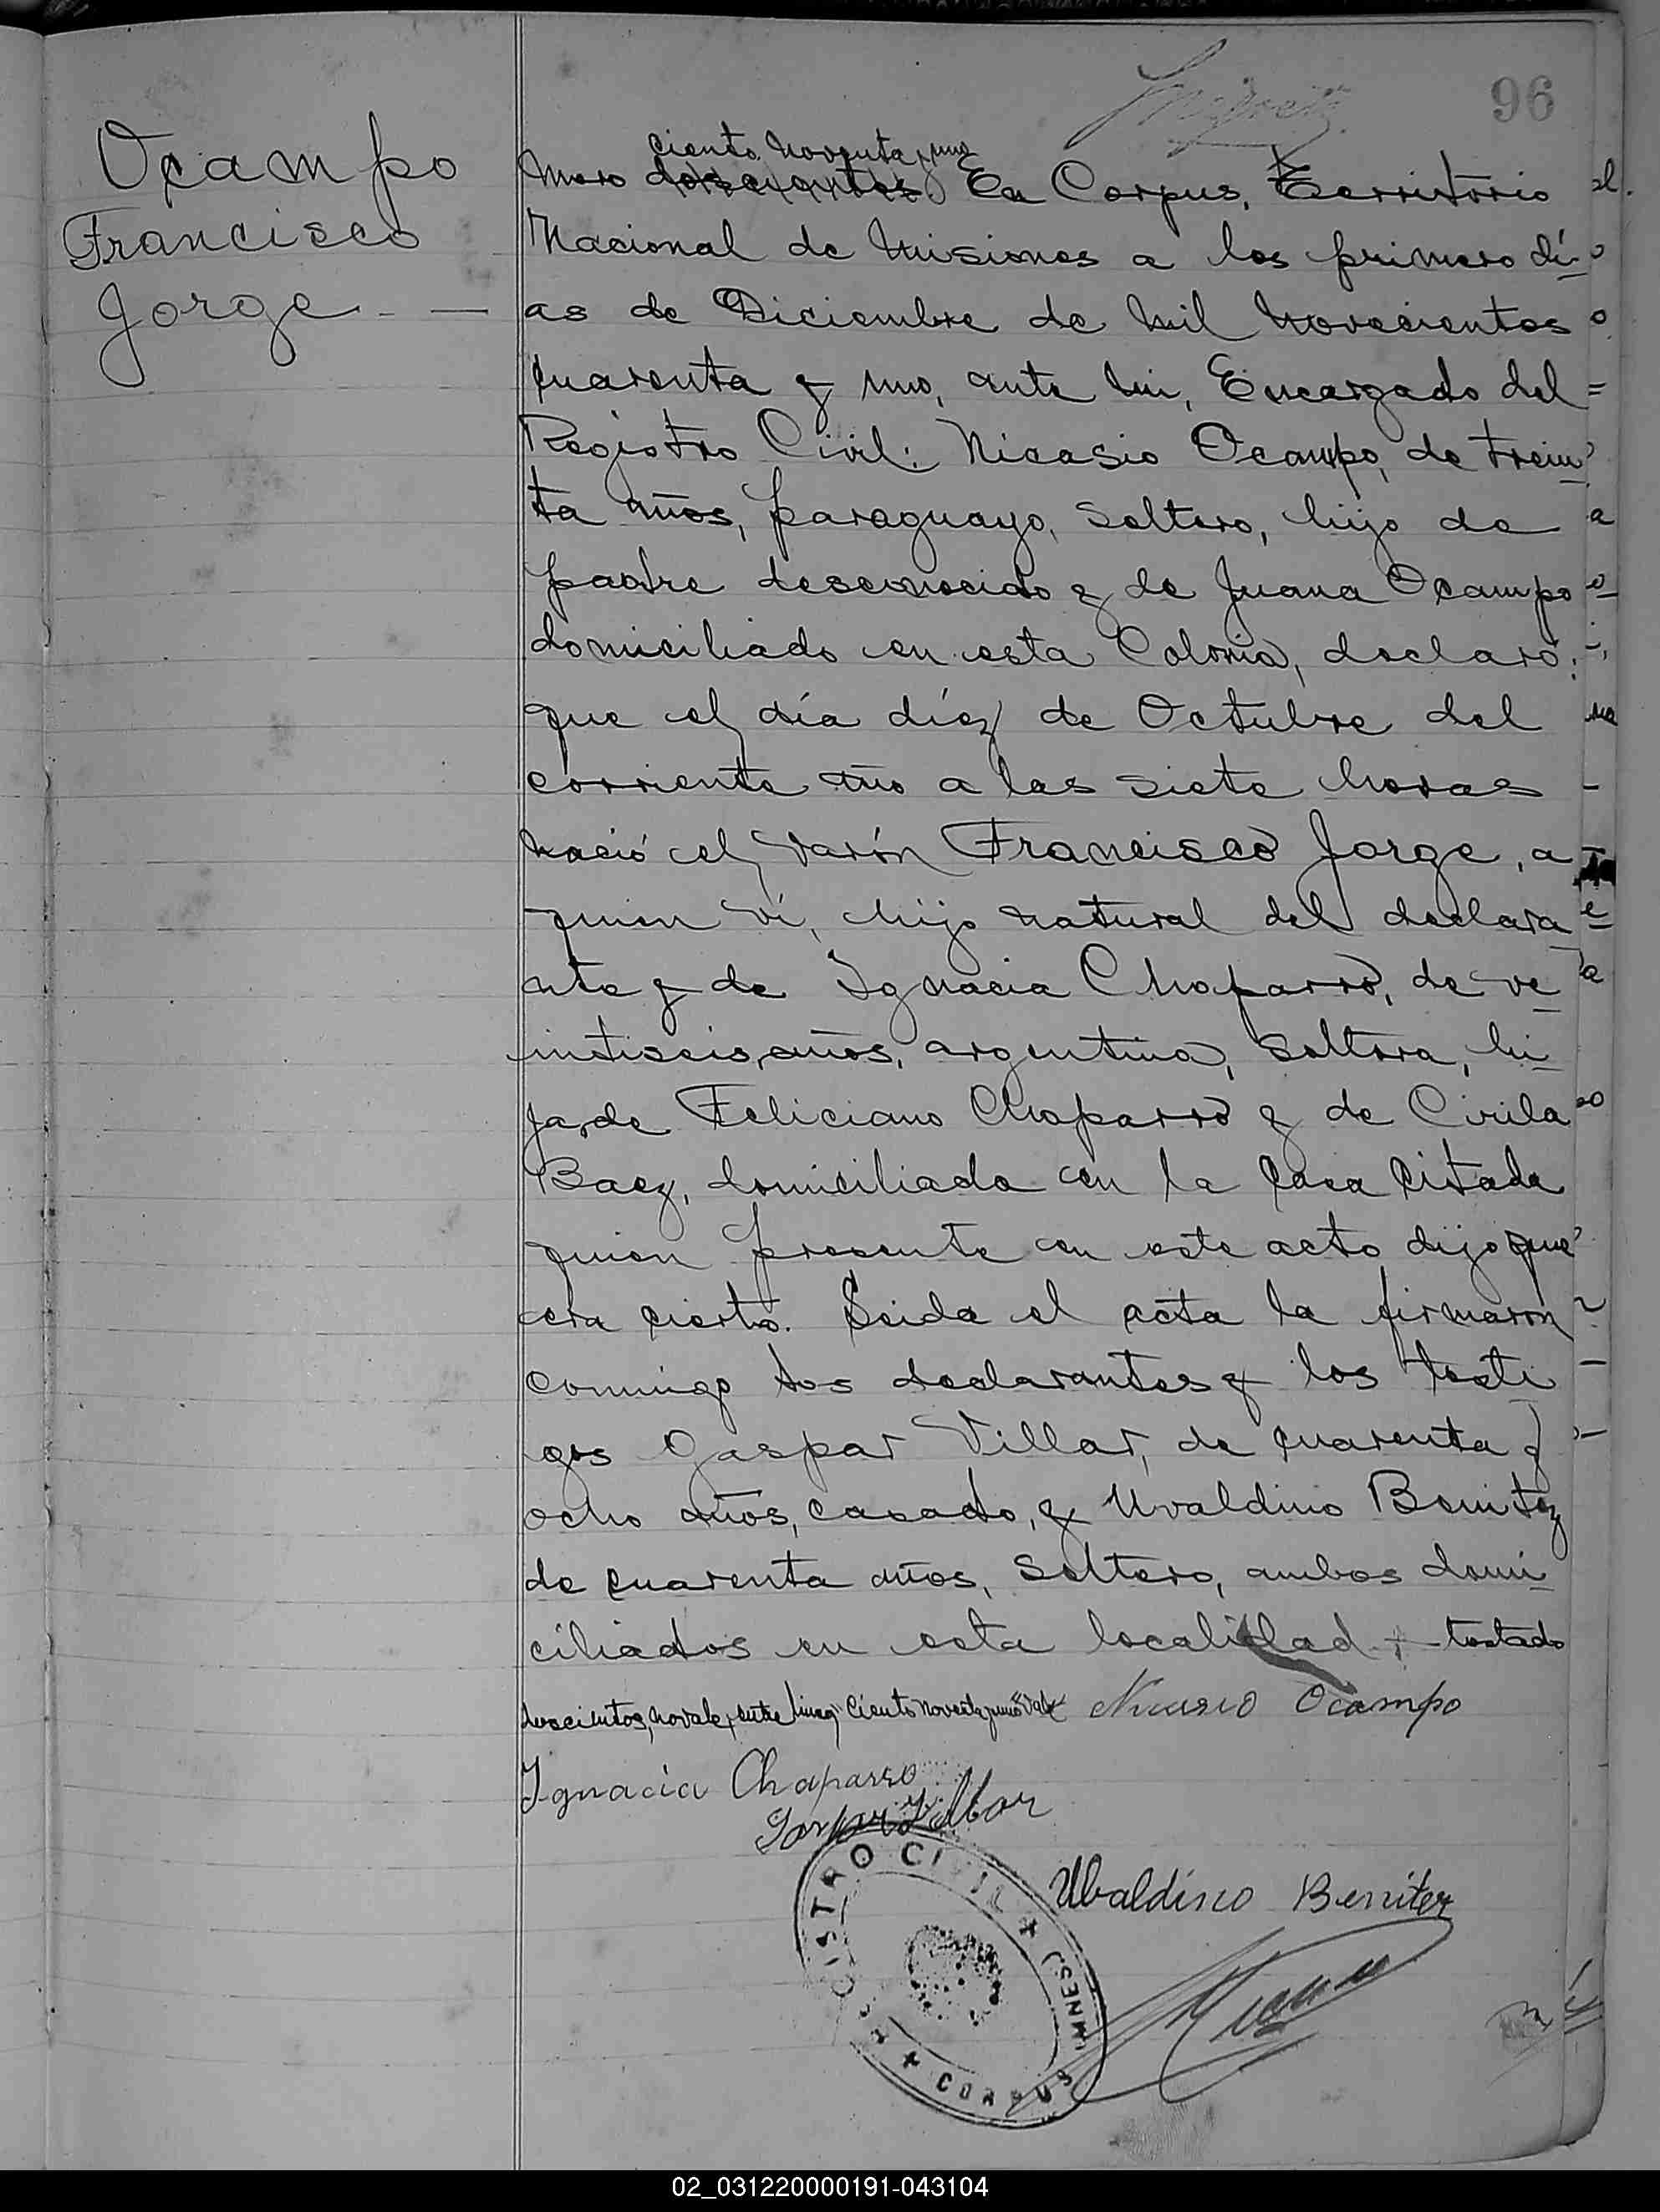 96
Ocampo
Francisco
Jorge. - —
ciento noventa y uno
mero doscientos En Corpus, Territorio
Nacional de Misiones a los primero dí-
as de Diciembre de mil novecientos
cuarenta y uno, ante mi, Encargado del
Registro Civil: Nicasio Ocampo, de trein-
ta años, paraguayo, soltero, hijo de
padre desconocido y de Juana Ocampo
domiciliado en esta Colonia, declaró:
que el día diéz de Octubre del
corriente año a las siete horas
nació el varón Francisco Jorge, a
quien ví, hijo natural del declara-
nte y de Ignacia Chaparro, de ve-
intiseis años, argentina, soltera, hi-
ja de Feliciano Chaparro y de Cirila
Baez, domiciliada en la casa citada
quien presente en este acto dijo que
era cierto. Leida el acta la firmaron
conmigo los declarantes y los testi
gos Gaspar Villar, de cuarenta y
ocho años, casado, y Uvaldino Benitez
de cuarenta años, soltero, ambos domi-
ciliados en esta localidad - testado
doscientos, no vale, entre lineas ciento noventa y uno vale Nicasio Ocampo
Ignacia Chaparro
Gaspar Villar
Ubaldino Benitez
REGISTRO CIVIL + (MNES.)
+ CORPUS
02_031220000191-043104